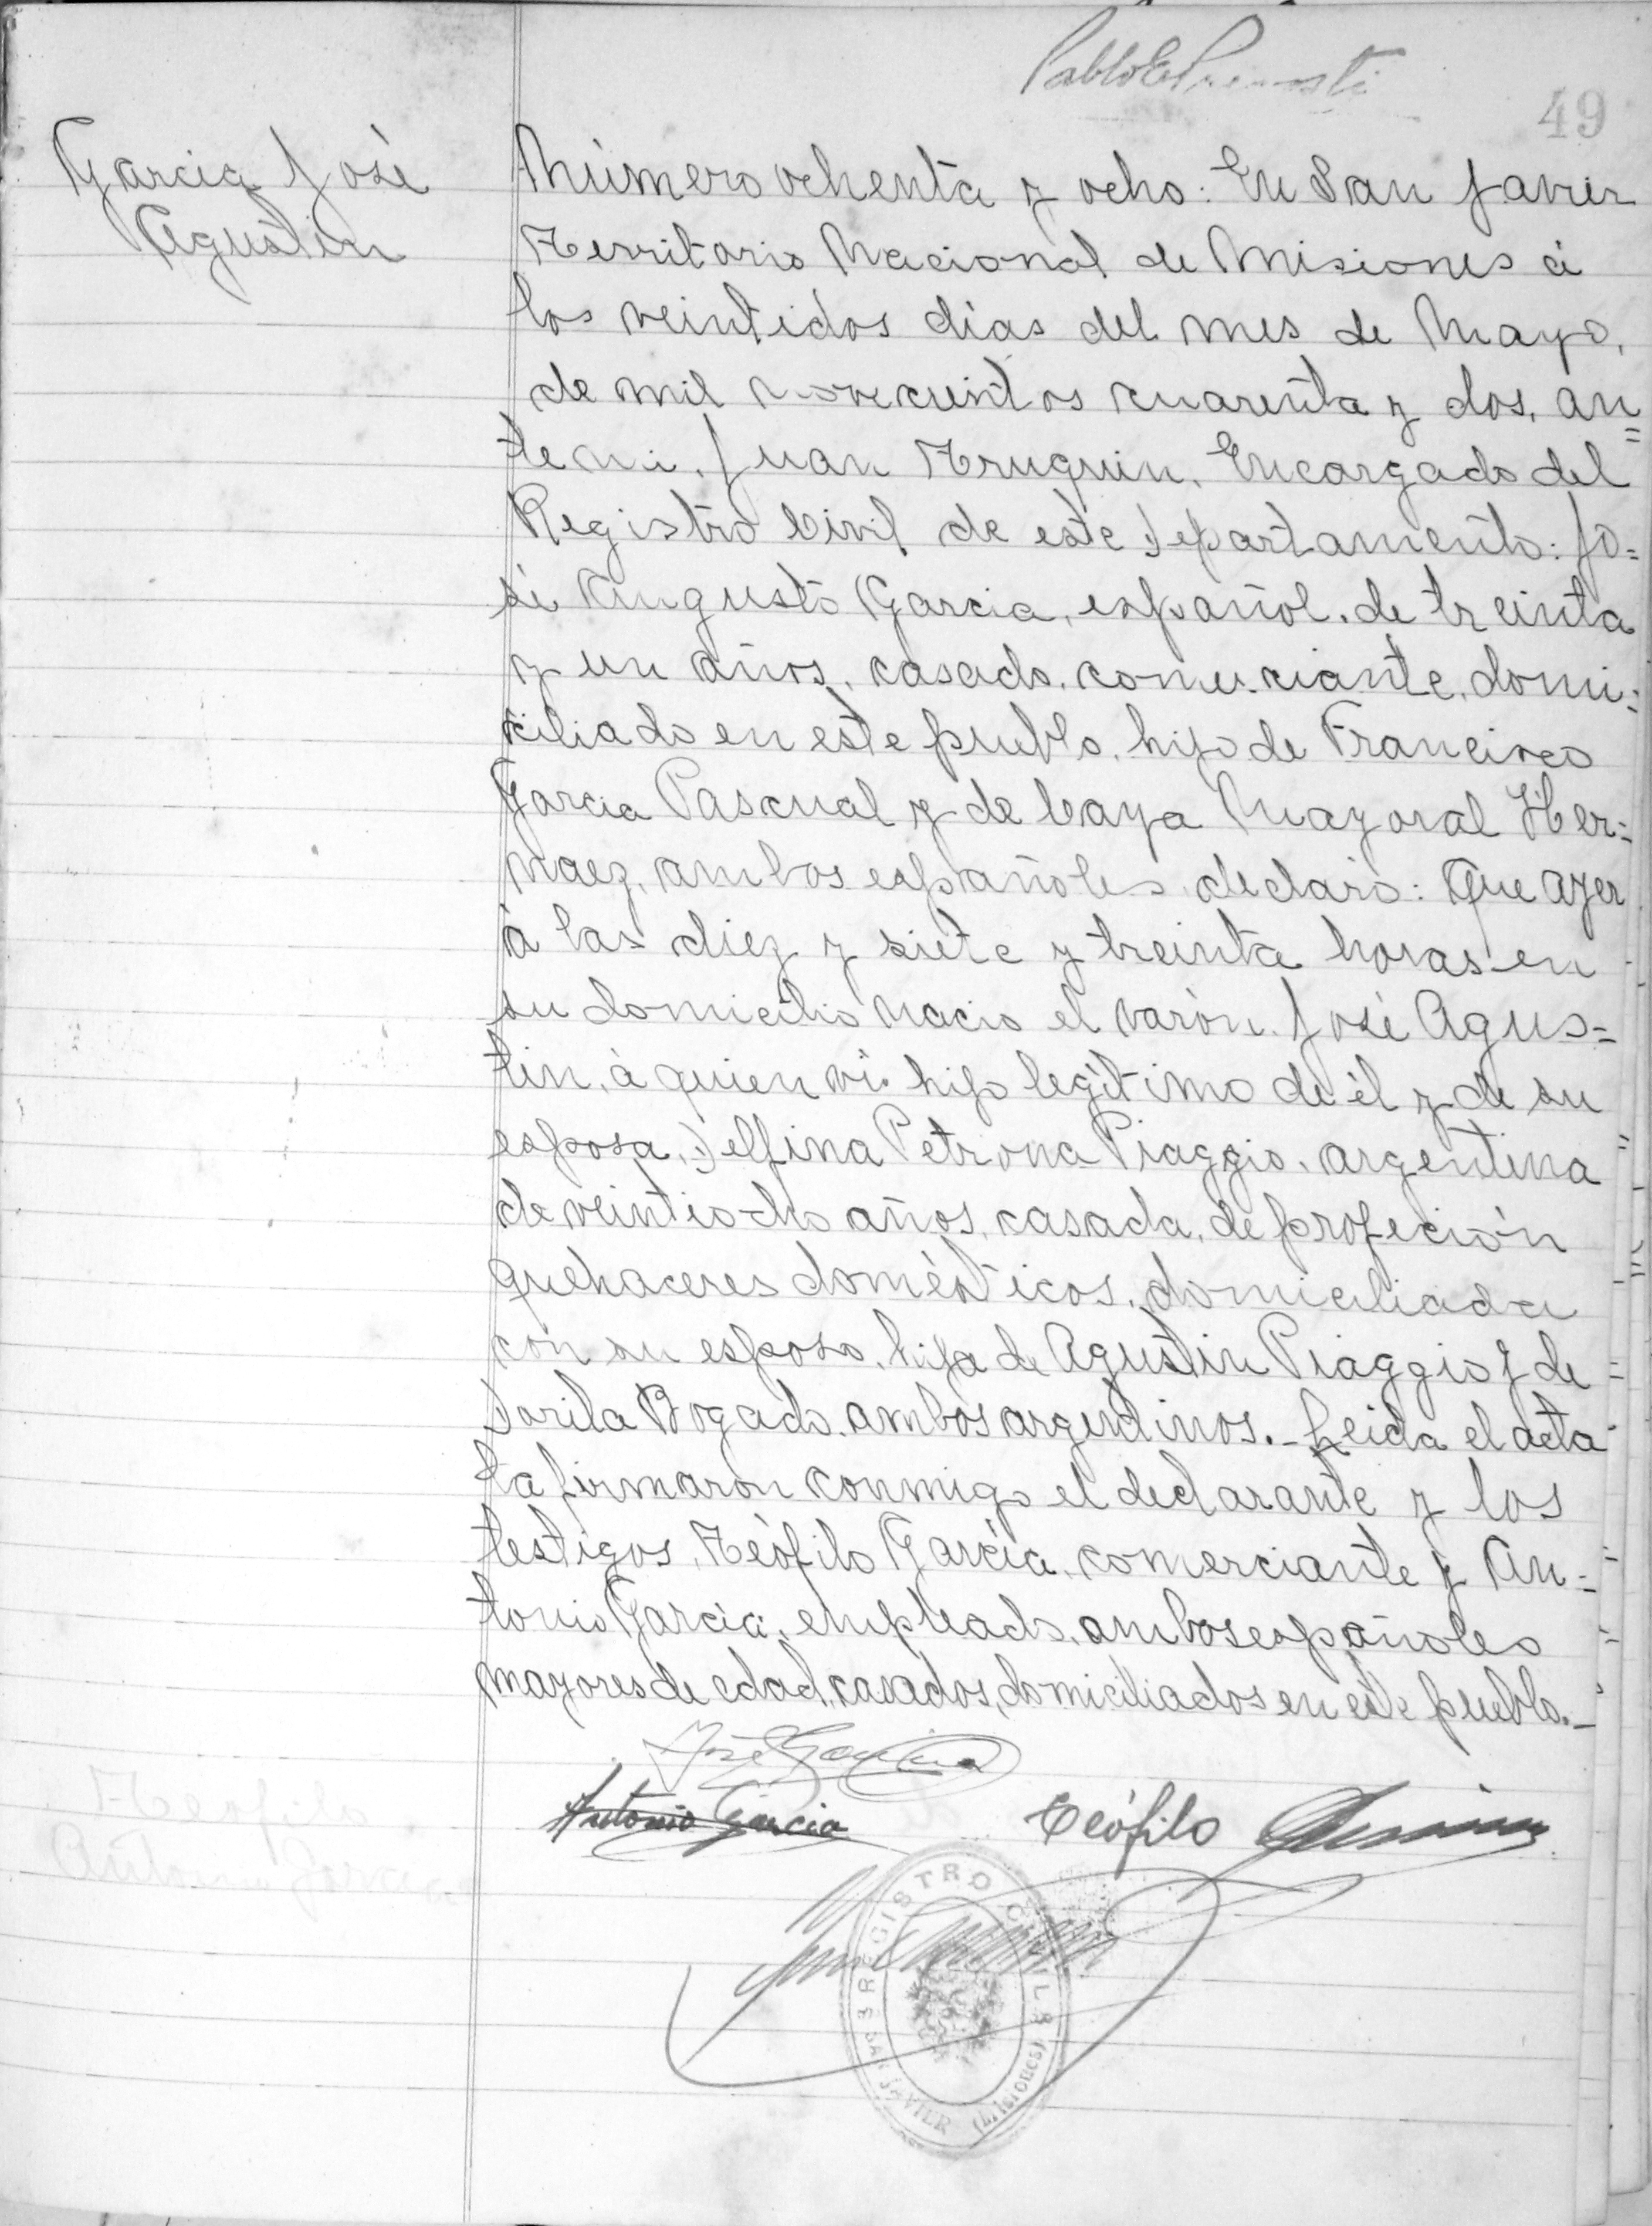 49
Garcia José
Agustin
Número ochenta y ocho: En San Javier
Territorio Nacional de Misiones á
los veintidós días del mes de Mayo,
de mil novecientos cuarenta y dos, an=
te mi, Juan Truquin, Encargado del
Registro Civil de este Departamento: Jo=
sé Augusto Garcia, español, de treinta
y un años, casado, comerciante, domi=
ciliado en este pueblo, hijo de Francisco
Garcia Pascual y de Caya Mayoral Her=
naez, ambos españoles, declaró: Que ayer
á las diez y siete y treinta horas en
su domicilio nacio el varón José Agus=
tin, á quien vi hijo legítimo de él y de su
esposa, Delfina Petrona Piaggio, argentina
de veintiocho años, casada, de profeción
quehaceres domésticos, domiciliada
con su esposo, hija de Agustin Piaggio y de
Dorila Bogado, ambos argentinos.- Leida el acta
la firmaron conmigo el declarante y los
testigos, Teófilo García, comerciante y An=
tonio Garcia, empleado, ambos españoles
mayores de edad, casados, domiciliados en este pueblo.-
José Garcia
Antonio Garcia Teófilo Garcia
REGISTRO CIVIL
SAN JAVIER (Misiones)
Teofilo
Antonio Garcia